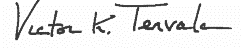 Victor K. Tervala